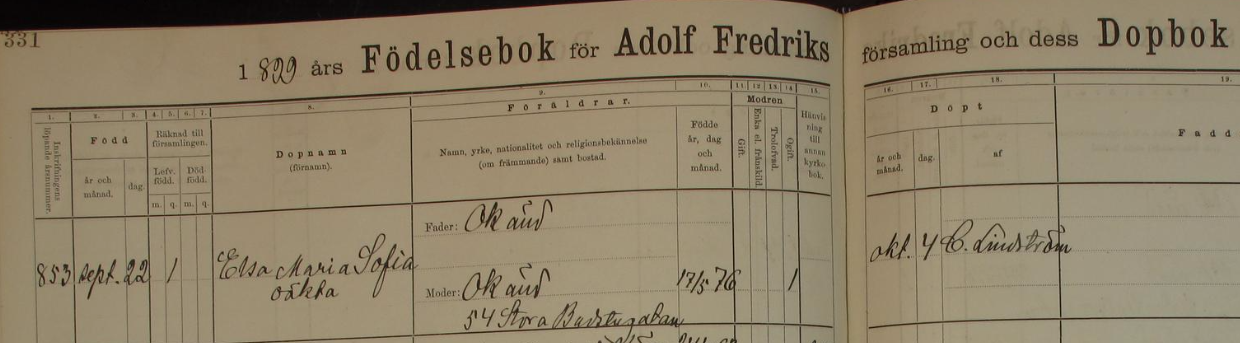 331
1899 års Födelsebok för Adolf Fredriks församling och dess Dopbok
1. 2. 3. 4. 5. 6. 7. 8. 9. 10. 11. 12. 13. 14. 15. 16. 17. 18. 19.
Inskrifningens löpande årsnummer.
Född
år och månad.
dag.
Räknad till församlingen.
Lefv. född.
Död född.
m. q. m. q.
Dopnamn
(förnamn).
Föräldrar.
Namn, yrke, nationalitet och religionsbekännelse
(om främmande) samt bostad.
Födde
år, dag
och
månad.
Modren
Gift.
Enka el. frånskild.
Trolofvad.
Ogift.
Hänvis
ning
till
annan
kyrko
bok.
Döpt
år och månad.
dag.
af
Fadd
Fader: Okänd
853 sept. 22 1 Elsa Maria Sofia
oäkta
Moder: Okänd 17/5 76 1
54 Stora Badstugatan
okt. 4 C. Lindström